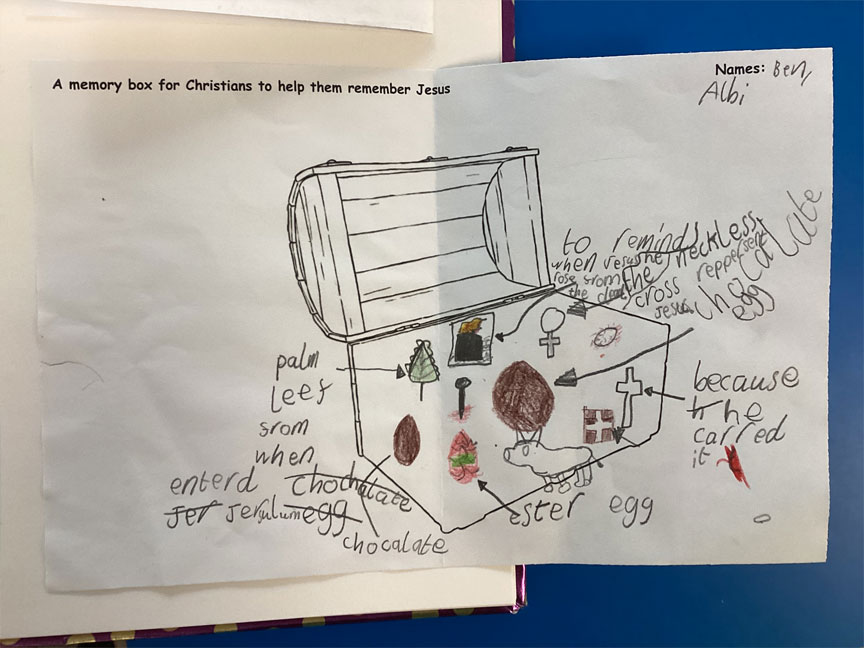 A memory box for Christians to help them remember Jesus
Names: Ben,
Albi
to reminds
when Jesus
rose srom
the dead
the neckless
the
cross reppersent
jesus
chocalate
egg
palm
leef
srom
when
enterd chochalate
Jer Jerulum egg
chocalate
because
h he
carred
it
ester egg